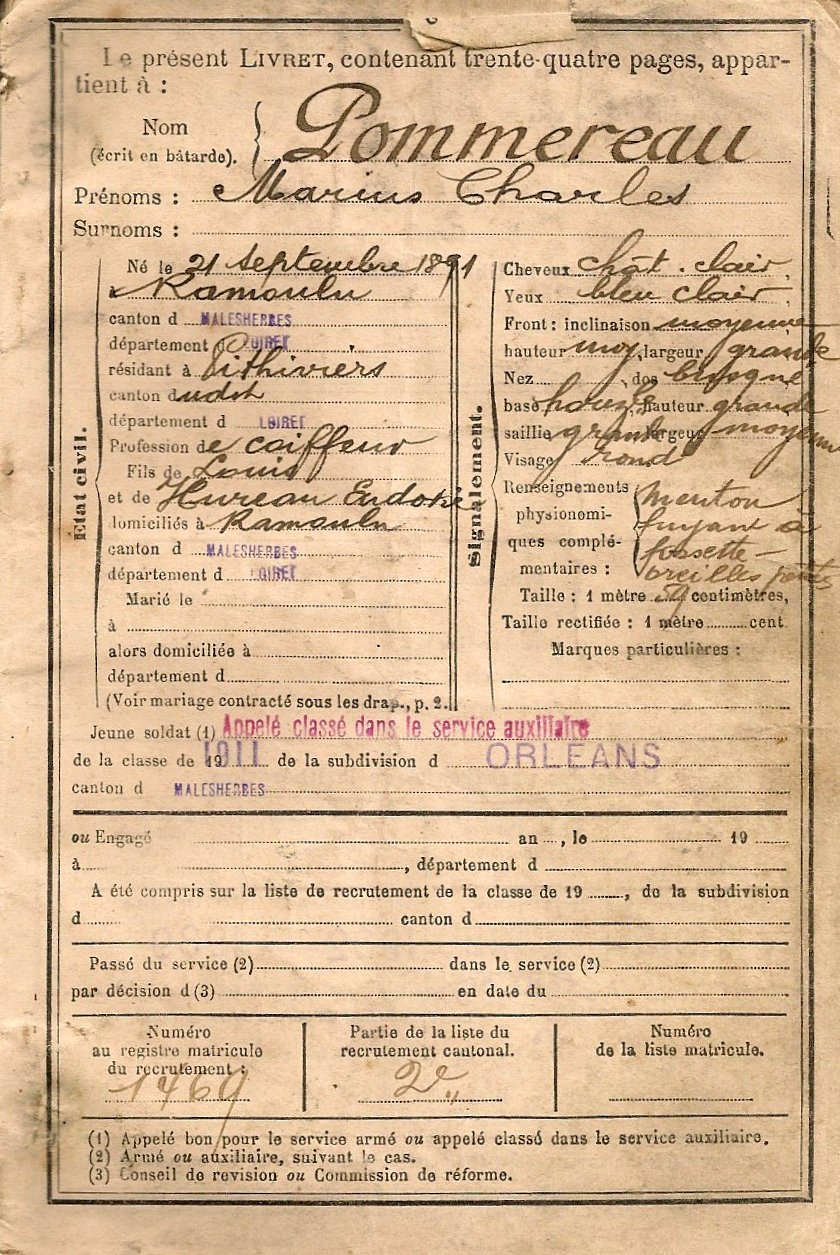 Le présent LIVRET, contenant trente-quatre pages, appar-
tient à :
Nom
(écrit en bâtarde).
Pommereau
Prénoms : Marius Charles
Surnoms :
Etat civil.
Né le 21 Septembre 1891
à Ramoulu
canton d MALESHERBES
département d LOIRET
résidant à Pithiviers
canton dudit
département d LOIRET
Profession de coiffeur
Fils de Louis
et de Hureau Eudoxie
domiciliés à Ramoulu
canton d MALESHERBES
département d LOIRET
Marié le
à
alors domiciliée à
département d
(Voir mariage contracté sous les drap., p. 2.
Signalement.
Cheveux chât. clair
Yeux bleu clair
Front : inclinaison moyenne
hauteur moy, largeur grande
Nez , dos busqué
base , hauteur grande
saillie grande largeur moyenne
Visage rond
Renseignements
physionomi-
ques complé-
mentaires :
menton
fuyant à
fossette -
oreilles petites
Taille : 1 mètre 59 centimètres,
Taille rectifiée : 1 mètre cent
Marques particulières :
Jeune soldat (1) Appelé classé dans le service auxiliaire
de la classe de 1911 de la subdivision d ORLEANS
canton d MALESHERBES
ou Engagé an , le 19
à , département d
A été compris sur la liste de recrutement de la classe de 19 , de la subdivision
d canton d
Passé du service (2) dans le service (2)
par décision d (3) en date du
Numéro
au registre matricule
du recrutement :
1469
Partie de la liste du
recrutement cantonal.
2e
Numéro
de la liste matricule.
(1) Appelé bon pour le service armé ou appelé classé dans le service auxiliaire.
(2) Armé ou auxiliaire, suivant le cas.
(3) Conseil de revision ou Commission de réforme.